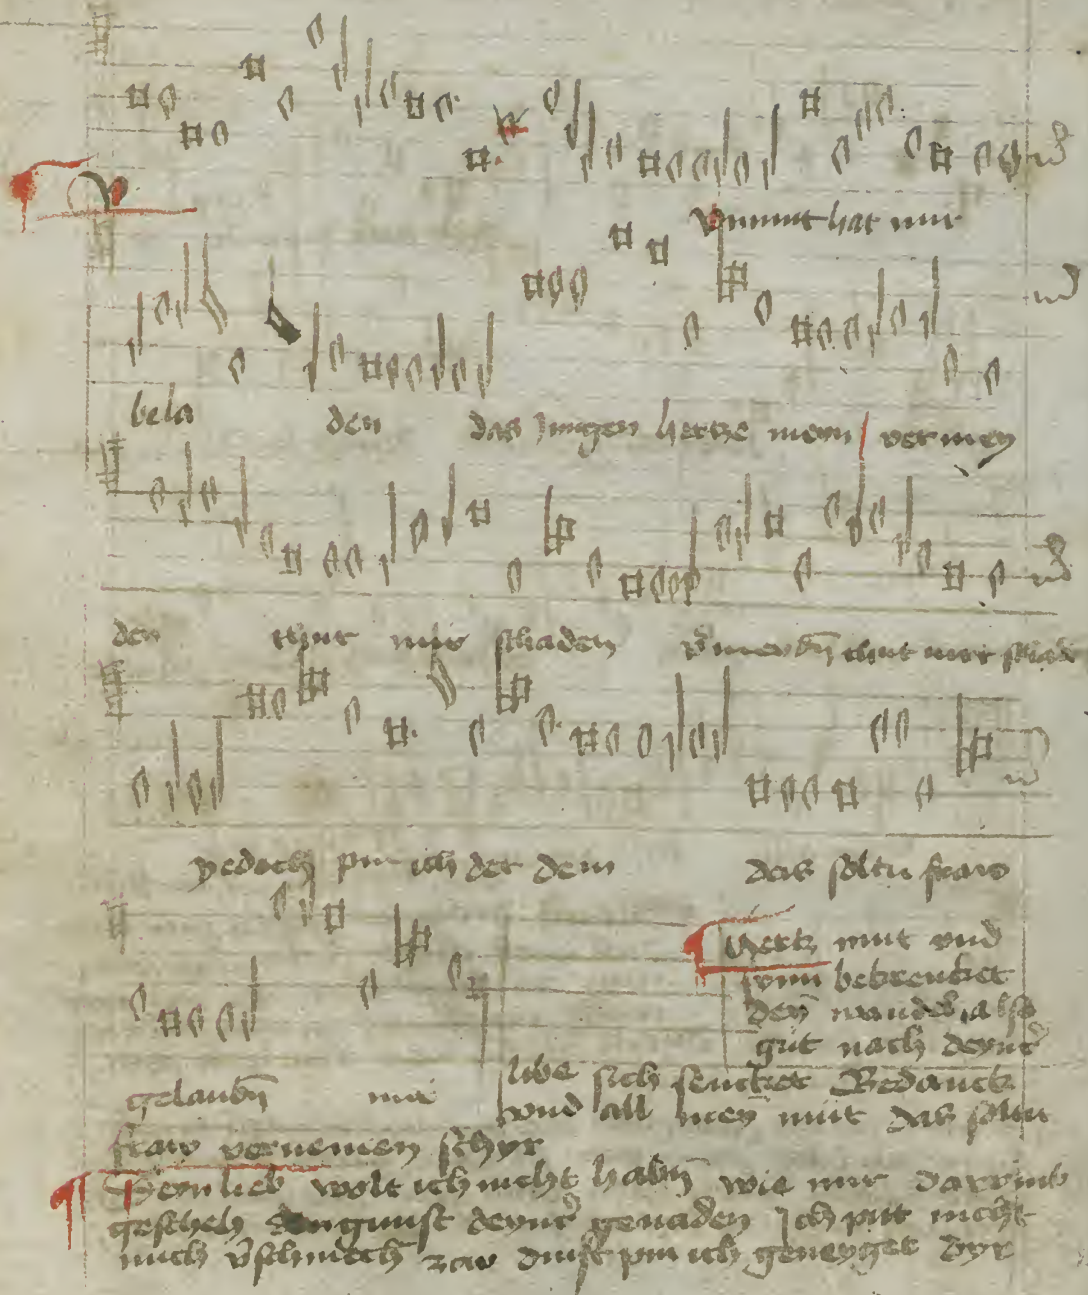 V
Unmut hat mir
bela den das Jungen hertze mein vermey
den thut mir schaden v̄meydn̄ thut mir schad
yedoch pin ich der dein das soltu fraw
gelaubn̄ mir
Hertz mut und
synn bekrencket
deȳ wandel also
gut nach deyner
libe sich sencket Gedanck
vnd all meȳ mut das soltu
fraw vernemen schyr
Deyn lieb wolt ich nicht habn̄ wie mir darumb
gescheh den gunst deyner genaden Ich pitt nicht
mich v̄schmech zcw dinst pin ich geneyget dyr